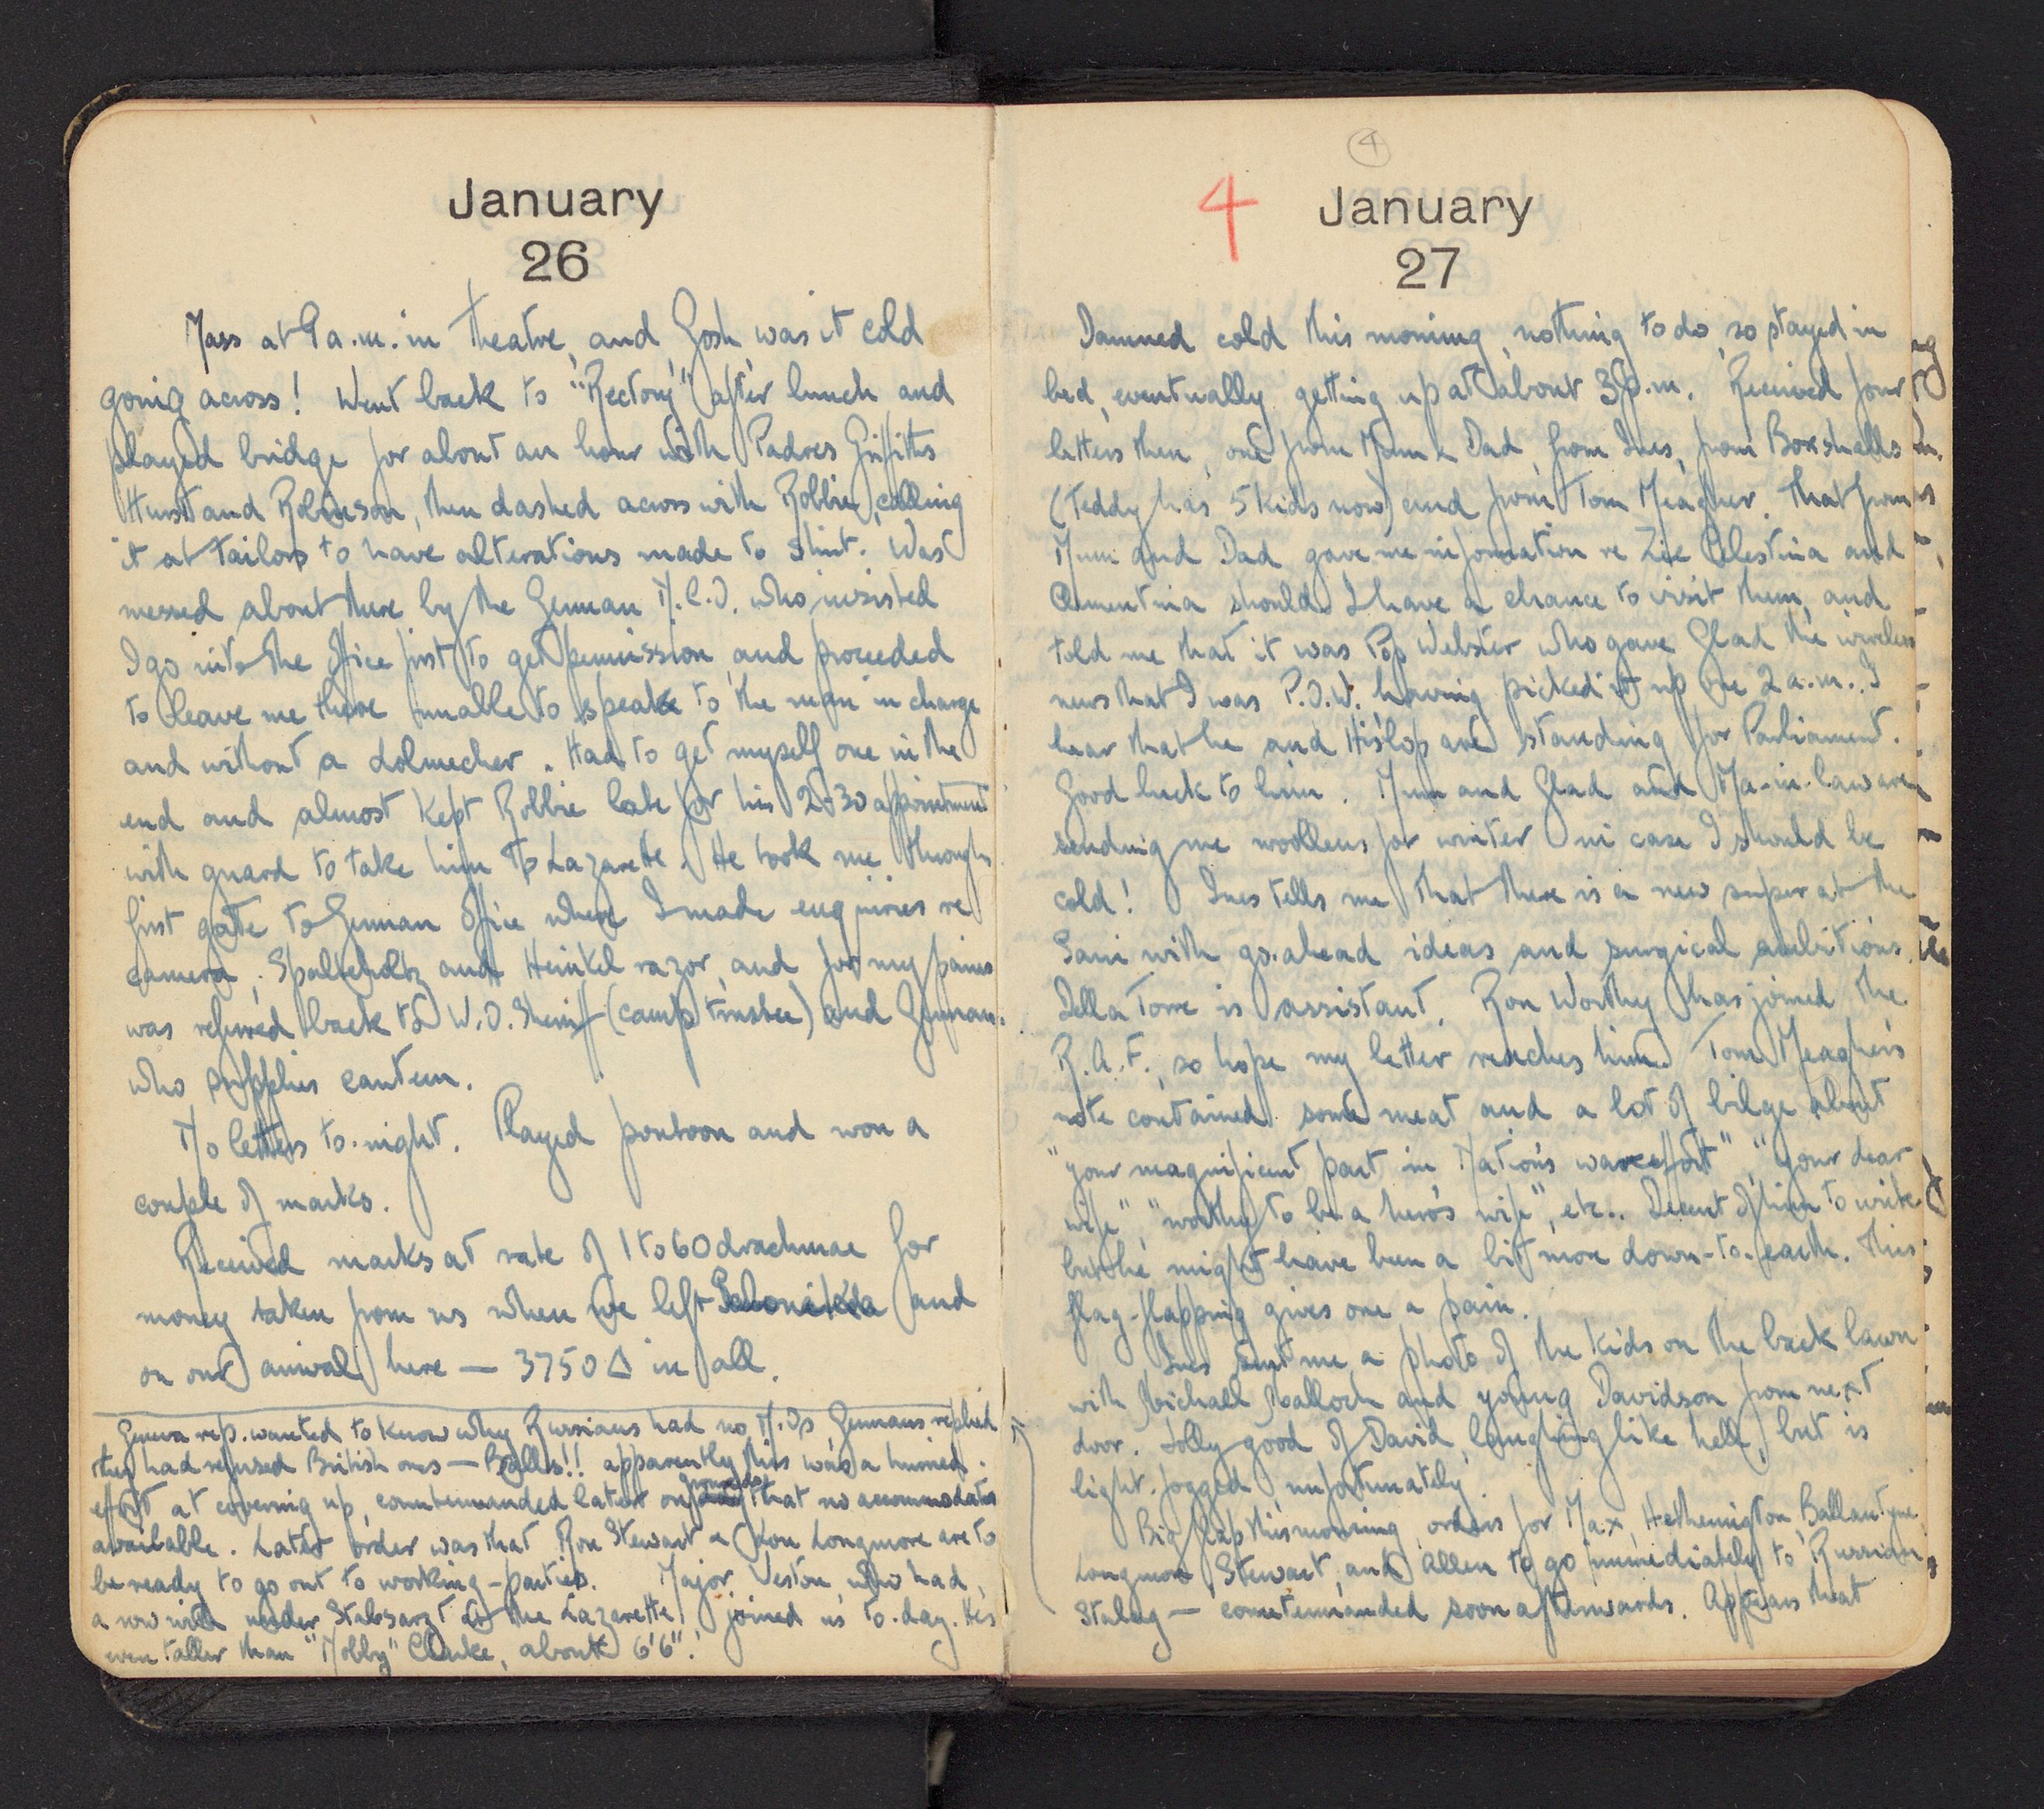 January
26
Mass at 9 a.m. in theatre, and Gosh, was it cold
going across! Went back to "Rectory" after lunch and
played bridge for about an hour with Padres Griffiths
Hurst and Robinson, then dashed across with Robbie, calling
it at Tailors to have alterations made to shirt. Was
messed about there by the German N.C.O. who insisted
I go into the Office first to get permission, and proceeded
to leave me there unable to speak to the man in charge
and without a dolmecher. Had to get myself one in the
end and almost kept Robbie late for his 2-30 appointment
with guard to take him to Lazarette. He took me through
first gate to German Office where I made enquiries re
camera, Spalteholtz and Henkel razor, and for my pains
was referred back to W.O. Sheriff (camp trustee) and German.
who supplies canteen.
No letters to-night. Played pontoon and won a
couple of marks.
Received marks at rate of 1 to 60 drachmae for
money taken from us when we left Salonika and
on our arrival here — 3750 Δ in all.
Geneva rep. wanted to know why Russians had no M.Os, Germans replied
they had refused British ones — Balls!! apparently this was a hurried
effort at covering up, countermanded later on grounds that no accommodation
available. Later order was that Ron Stewart & Don Longmore are to
be ready to go out to working-parties. Major Weston who had
a row with under Stabsarzt at the Lazarette, joined us to-day. He's
even taller than "Nobby" Clarke, about 6'6".
4
4
January
27
Damned cold this morning, nothing to do, so stayed in
bed, eventually getting up at about 3 p.m. Received four
letters then, one from Mum & Dad, from Ines, from Boxshalls
(Teddy has 5 kids now) and from Tom Meagher. That from
Mum and Dad gave me information re Zie Celestina and
Clementina should I have a chance to visit them, and
told me that it was Pop Webster who gave Glad the wireless
news that I was P.O.W. having picked it up one 2 a.m.. I
hear that he and Hislop are standing for Parliament.
Good luck to him. Mum and Glad and Ma-in-law are
sending me woollens for winter in case I should be
cold! Ines tells me that there is a new super at the
Sani with go-ahead ideas and surgical ambitions.
Della Torre is assistant. Ron Worthy has joined the
R.A.F., so hope my letter reaches him. Tom Meagher's
note contained some meat and a lot of bilge about
"your magnificent part in Nation's war effort", "your dear
wife" "worthy to be a hero's wife", etc.. Decent of him to write
but he might have been a bit more down-to-earth. This
flag-flapping gives one a pain.
Ines sent me a photo of the kids on the back lawn
with Michael Malloch and young Davidson from next
door. Jolly good of David, laughing like hell, but is
light-fogged unfortunately.
Big flap this morning, orders for Max, Hetherington, Ballantyne
Longmore, Stewart, and Allen to go immediately to Russian
Stalag — countermanded soon afterwards. Appears that